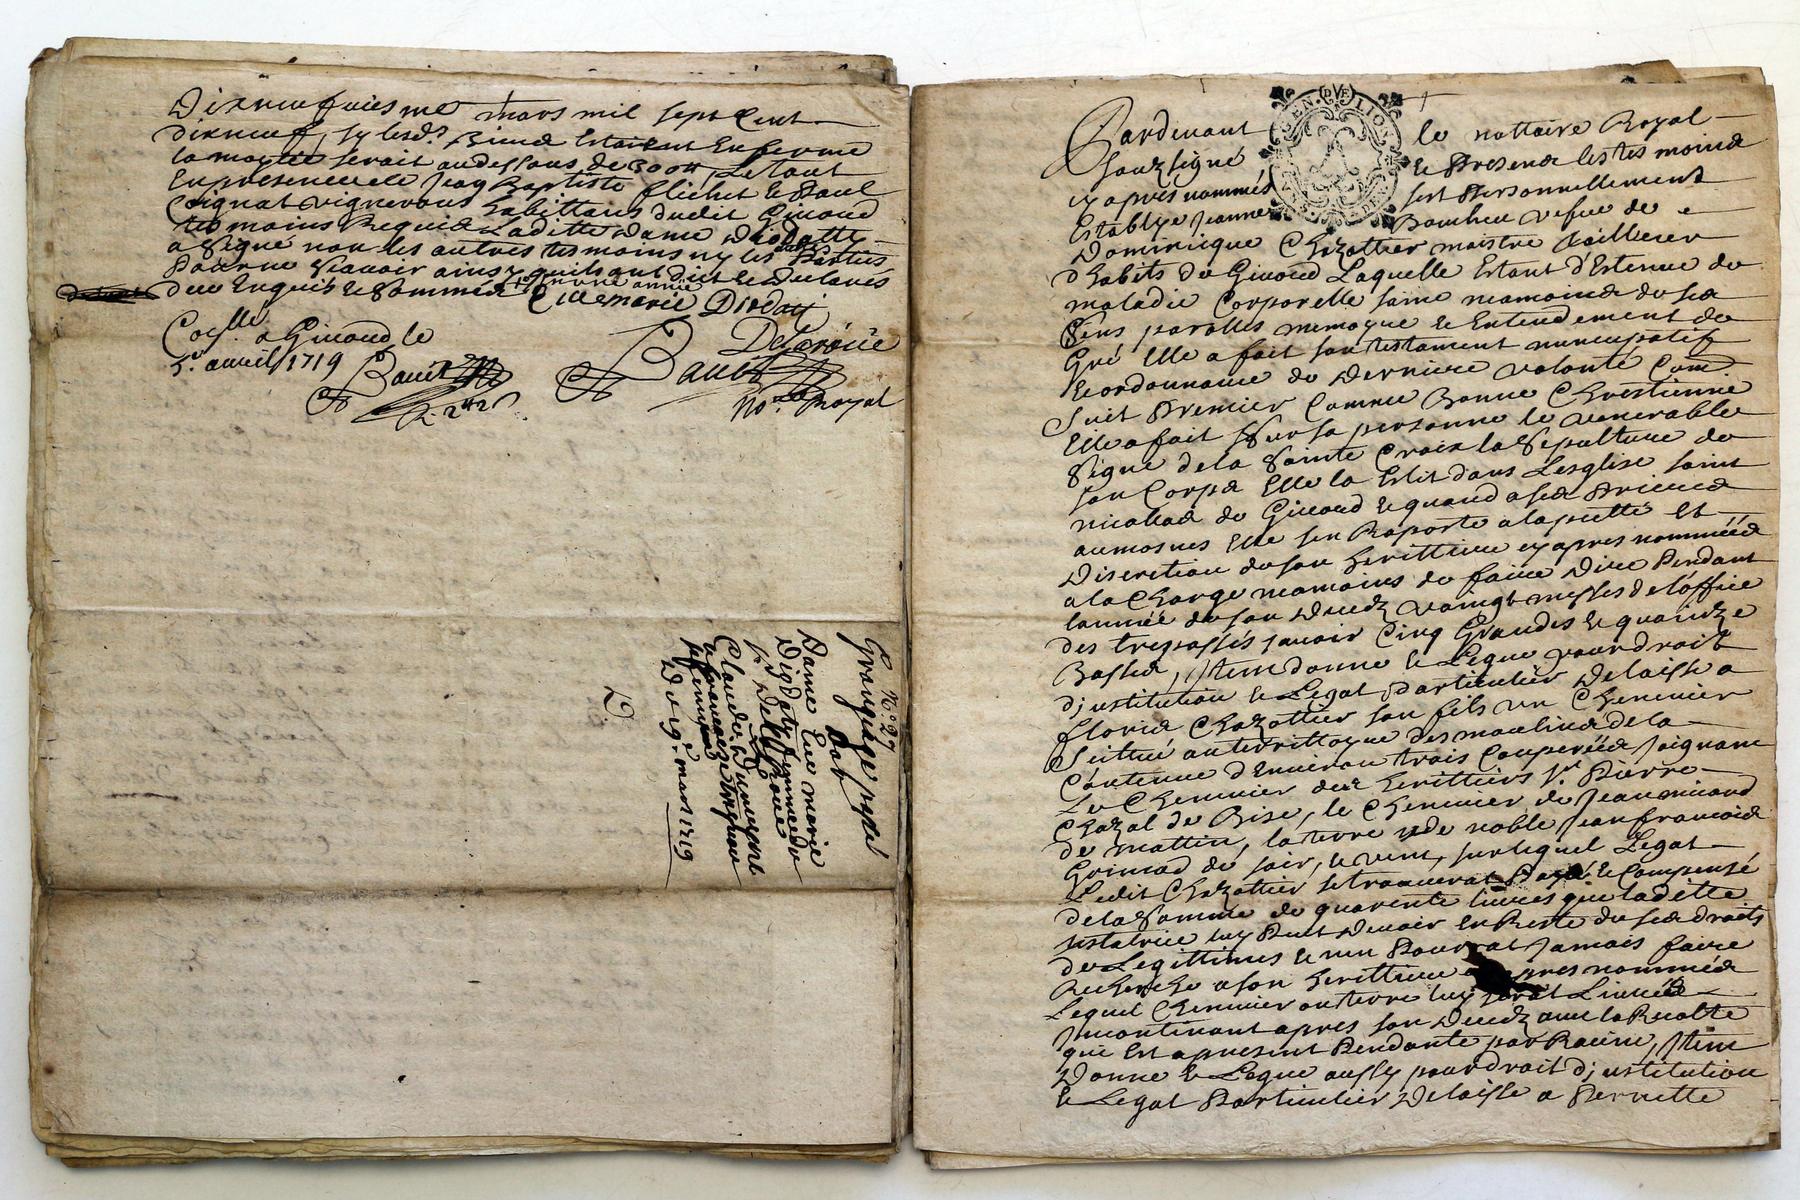 Dixneufviesme mars mil sept Cent
dixneuf, sy lesd. Biens Estaient En ferme
la moytié serait audessous de 300 ₶, Le tout
En presence de Jean Baptiste flichet & Paul
Coignat vignerons habittans dudit Givord
tesmoins Requis Laditte Dame Diodatty
a Signé non les autres tesmoins ny les Parties
Pour ne Scavoir ainsy quils ont dict & declarés
deue Enquis & Sommés
Evemarie Diodati
Delaroüe
Con.lle a Givord le
5.e avril 1719
Bauet
No.re Royal
N.o 27
Grangeage passé
Par
Dame Eve marie
Diodaty femme de
S.r Delaroüe
A
Claude
du 19.e mars 1719
2.
GEN. DVE LION
Pardevant le nottaire Royal
Soubsigné & Presens les tesmoins
cy apres nommés fut Personnellement
Establye Jeanne Bouchu vefue de
Dominique Chazottier maistre tailleur
d'habits de Givord Laquelle Estant d'Estenue de
maladie Corporelle saine neamoins de ses
Sens parolles memoyre & Entendement de
Gré Elle a fait son testament nuncupatif
& ordonnance de Derniere volonté Comē
Suit Premier Comme Bonne Chrestienne
Elle a fait Sur sa personne le venerable
Signe de la Sainte Croix la Sepulture de
son Corps Elle la Eslit dans Lesglise saint
nicollas de Givord & quand a ses Prieres
aumosnes Elle sen Raporte a la pietté Et
Discretion de son herittiere cy apres nommée
a la Charge neamoins de faire Dire Pendant
lannée de son Decedz vaingt messes de l'office
des trepassés scavoir Cinq Grandes & quinze
Basses, Item donne & Legue pour droit
d'institution & Legat Particulier Delaisse a
floris Chazottier son fils un Chenevier
Scittué au territtoyre des moulins de la
Contenue d'Environ trois Couperées Joignant
Le Chenevier des herittiers S.r Pierre
Chazal de Bise, le Chenevier de Jean
de mattin, la terre de noble Jean francois
Grimod de soir, & vent, surlequel Legat
Ledit Chazottier se trouverat Payé & Compensé
de la Somme de quarente livres que laditte
testatrice luy Peut Devoir En Reste de ses droits
de Legittimes & nen Pourrat Jamais faire
Recherche a son herittiere apres nommée
Lequel Chenevier ou terre luy serat Livrée
Incontinant apres son Decedz avec la Recolte
qui Est apresent Pendante par Racine, Item
Donne & Legue aussy pour droit d'institution
& Legat Particulier Delaisse a Pernette